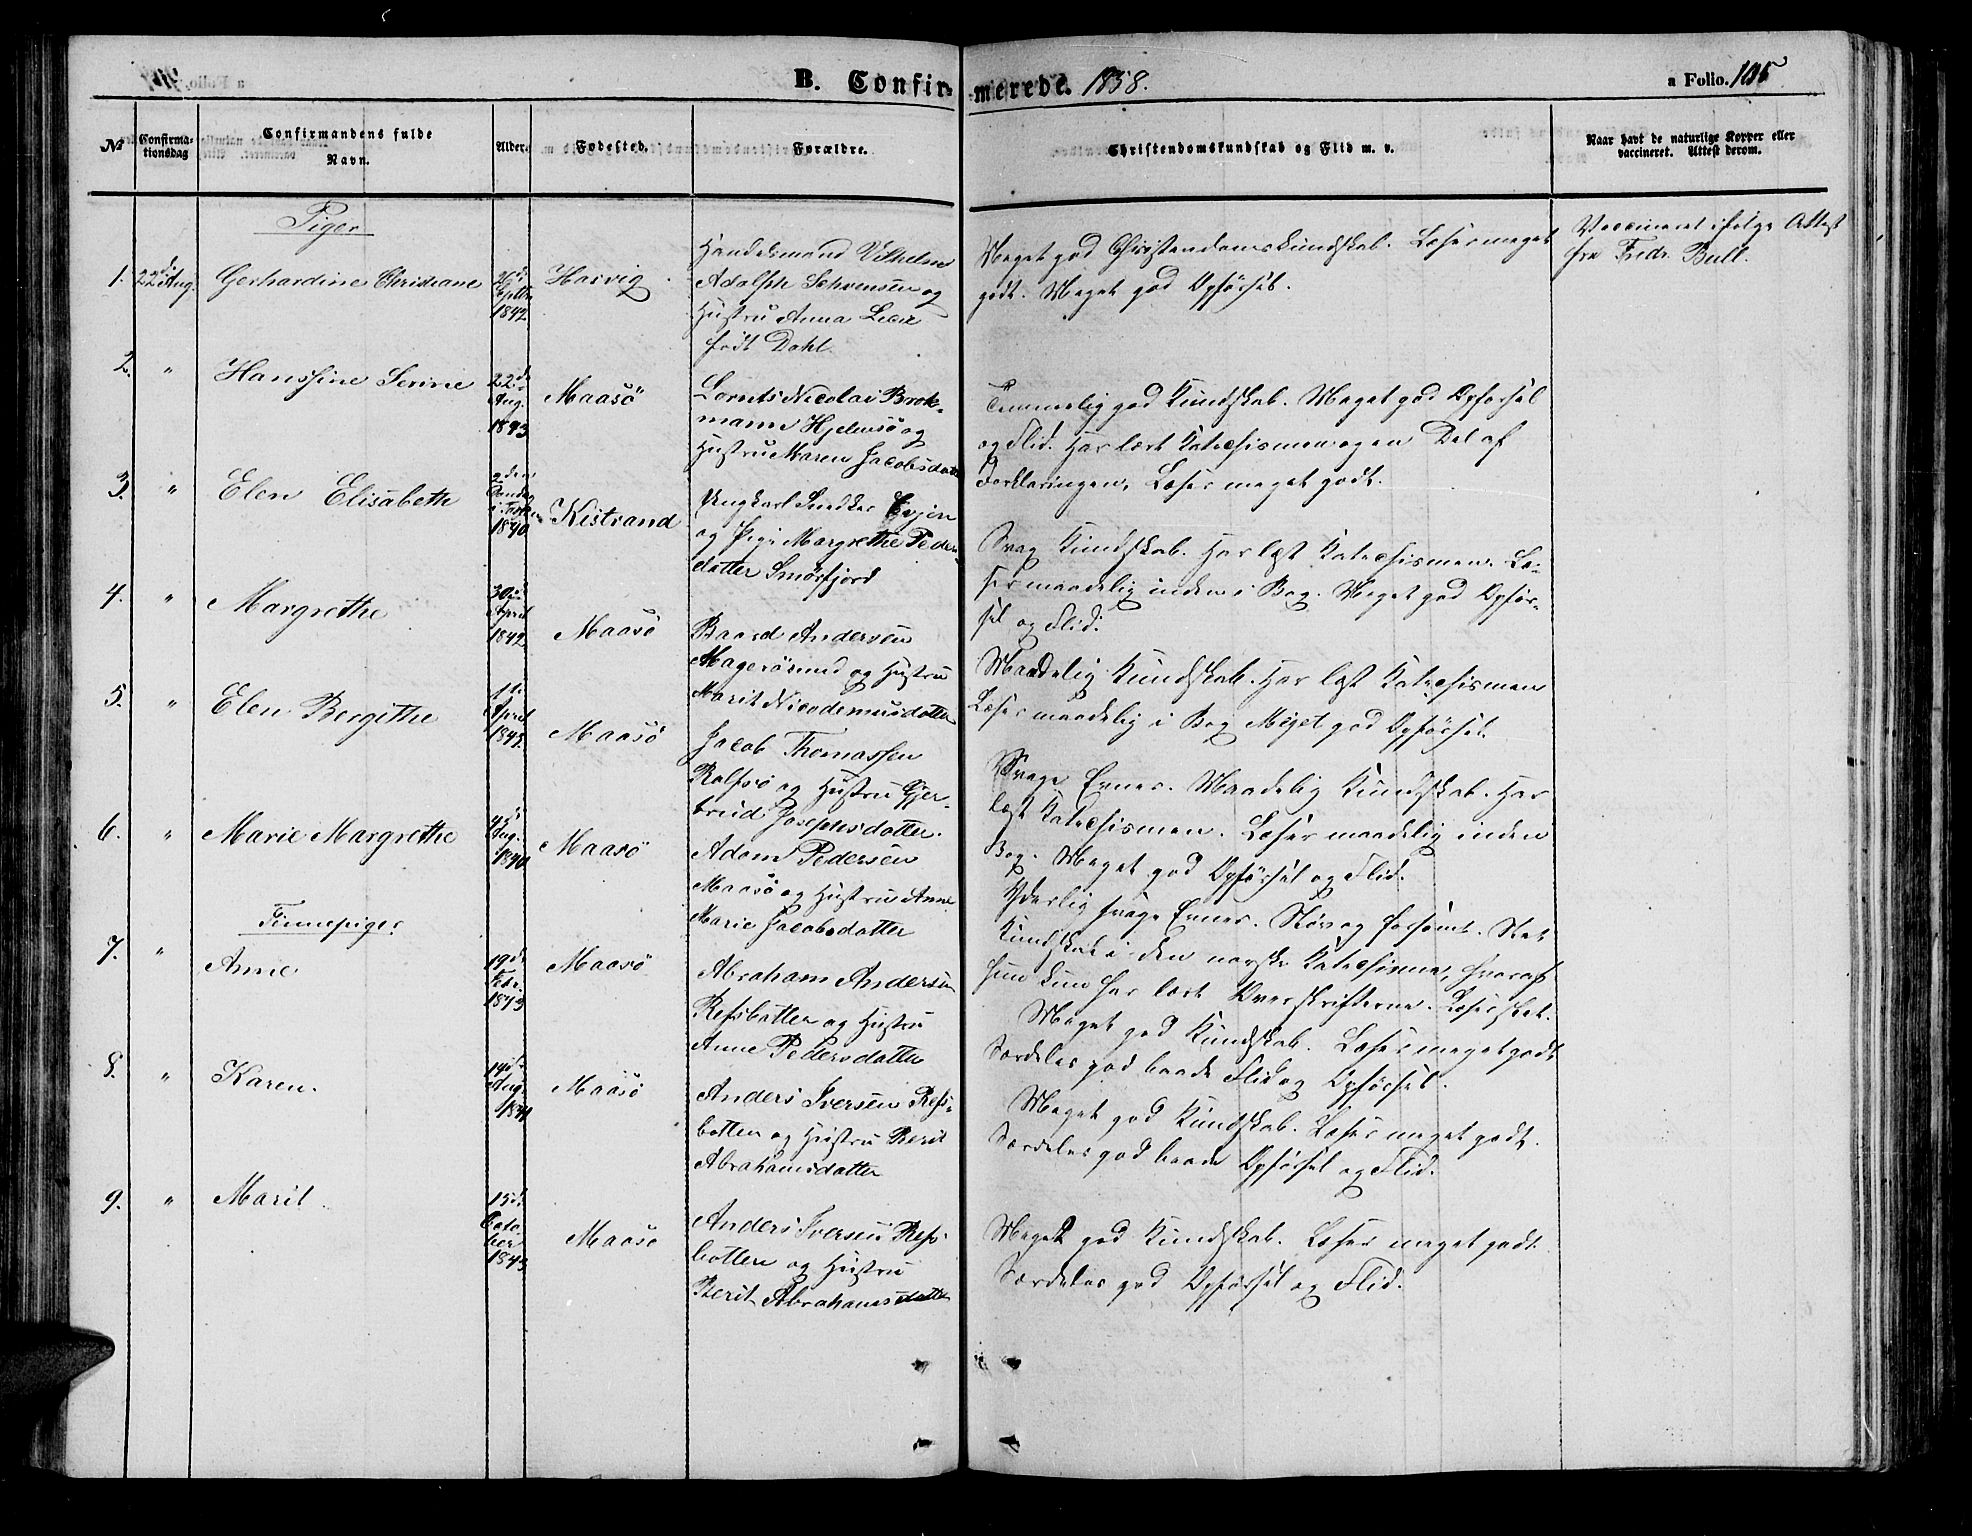 B. Confirmerede. 1858.
a Folio. 105
No
Confirmationsdag
Confirmandens fulde Navn.
Alder.
Fødested.
Forældre.
Christendomskundskab og Flid m. v.
Naar havt de naturlige Kopper eller vaccineret. Attest derom.
Piger
1. 22d Aug. Gerhardine Christiane
26d Septbr 1842
Hasvig
Handelsmand Vilhelm
Adolph Schvensen og
Hustru Anna Lucie
født Dahl
Meget god Christendomskundskab. Læser meget
godt. Meget god Opførsel.
Vaccineret ifølge Attest
fra Fredr. Bull.
2. " Hansine Serine
22de Aug. 1843
Maasö
Lorents Nicolai Brok-
mann Hjelmsö og
Hustru Maren Jacobsdatter
Temmelig god Kundskab. Meget god Opførsel
og Flid. Har lært Katechismen og en Del af
Forklaringen. Læser meget godt.
3. " Elen Elisabeth
2den Søndag i Fasten 1840
Kistrand
Ungkarl Snedker Evjen
og Pige Margrethe Peders-
datter Smörfjord
Svag Kundskab. Har læst Katechismen. Læ-
ser maadelig inden i Bog. Meget god Opfør-
sel og Flid.
4. " Margrethe
30de April 1842
Maasö
Baard Andersen
Magerösund og Hustru
Marit Nicodemusdatter
Maadelig Kundskab. Har læst Katechismen
Læser maadelig i Bog. Meget god Opførsel.
5. " Elen Bergithe
11te April 1843
Maasö
Jacob Thomassen
Rolfsö og Hustru Gjer-
trud Josephsdatter.
Svage Evner. Maadelig Kundskab. Har
læst Katechismen. Læser maadelig inden
Bog. Meget god Opførsel og Flid.
6. " Marie Margrethe
Aug. 1840
Maasö
Adam Pedersen
Maasö og Hustru Anne
Marie Jacobsdatter
Yderlig svage Evner. Sløv og forsømt. Slet
Kundskab i den norske Katechisme, hvoraf
hun kun har lært Overskrifterne. Læser slet.
Finnepiger
7. " Anne
19de Febr. 1843
Maasö
Abraham Andersen
Refsbotten og Hustru
Anne Pedersdatter
Meget god Kundskab. Læser meget godt
Særdeles god baade Flid og Opførsel.
8. " Karen.
14de Aug. 1841
Maasö
Anders Iversen Refs-
botten og Hustru Berit
Abrahamsdatter
Meget god Kundskab. Læser meget godt.
Særdeles god baade Opførsel og Flid.
9. " Marit
15de October 1843
Maasö
Anders Iversen Refs-
botten og Hustru
Berit Abrahamsdatter
Meget god Kundskab. Læser meget godt
Særdeles god Opførsel og Flid.